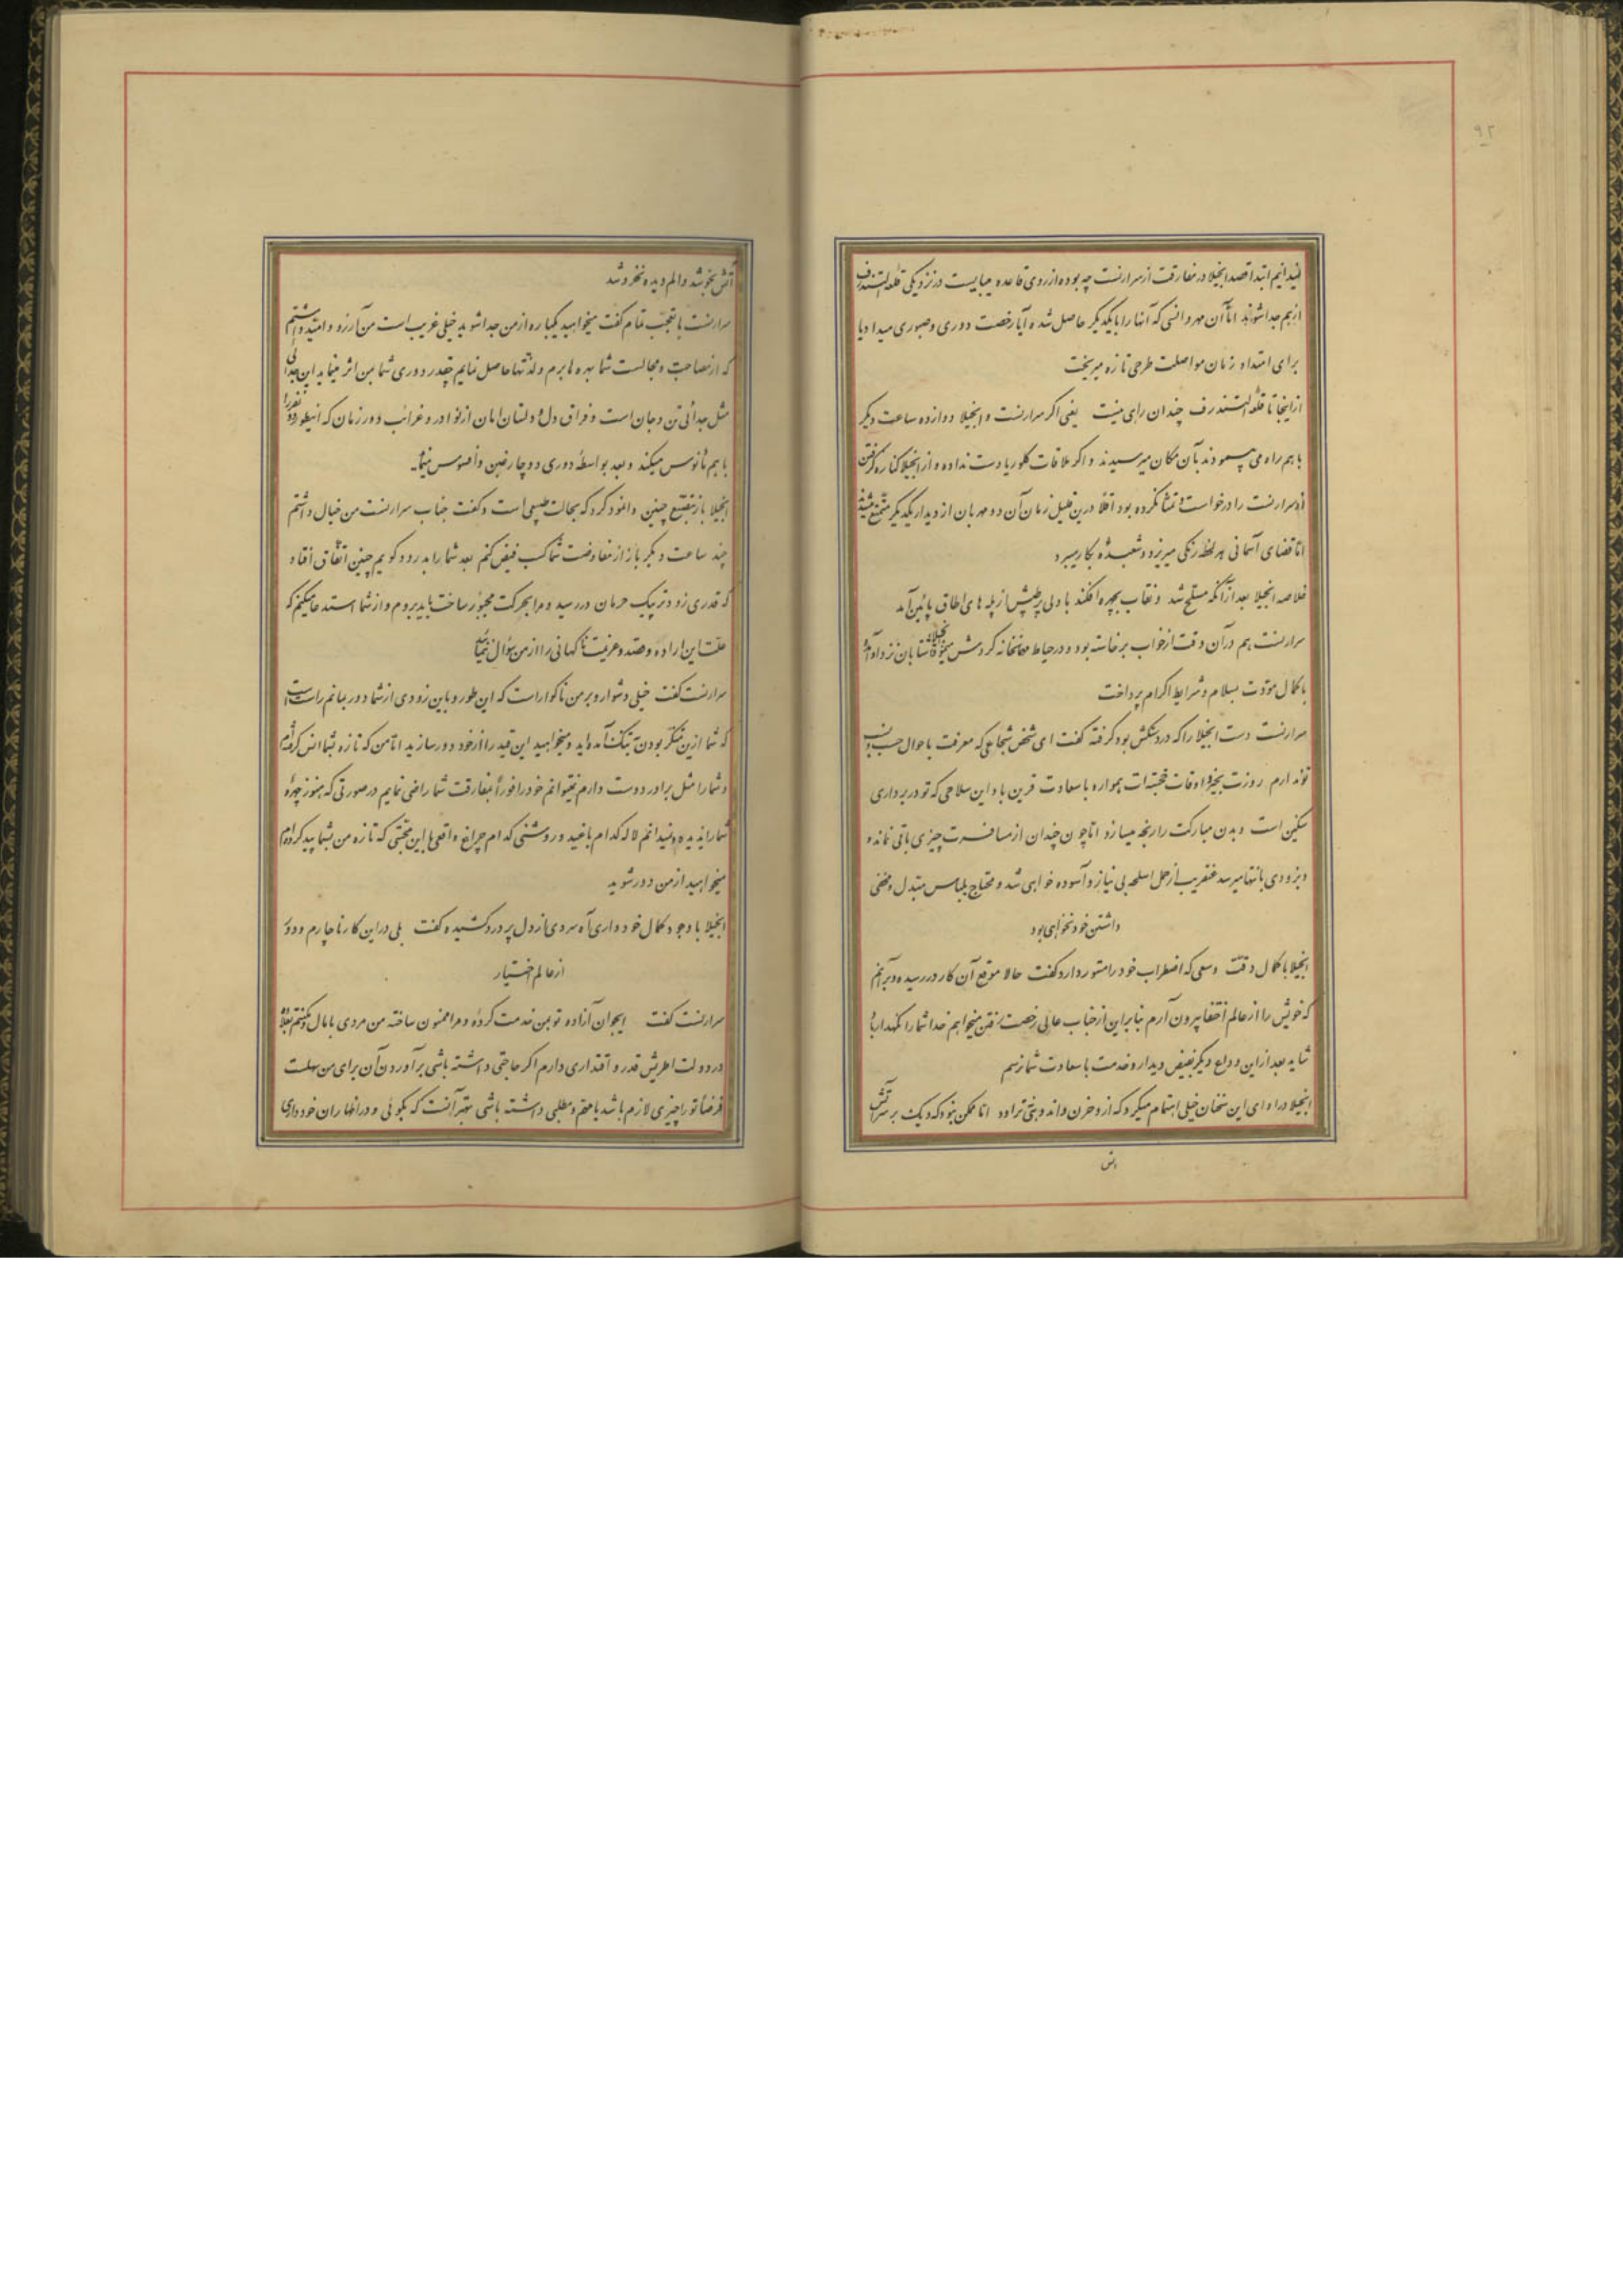 ۹۲
نمیدانیم ابتدا قصد انجیلا در مفارقت از سرارنست چه بوده از روی قاعده میبایست در نزدیکی قلعه التندرف
از هم جدا شوند اما آن مهر و انسی که آنها را با یکدیگر حاصل شده آیا رخصت دوری و صبوری میداد یا
برای امتداد زمان مواصلت طرحی تازه میریخت
از اینجا تا قلعه التندرف چندان راهی نیست یعنی اگر سرارنست و انجیلا دوازده ساعت دیگر
با هم راه می پیمودند بآن مکان میرسیدند و اگر ملاقات گلوریا دست نداده و از انجیلا کناره گرفتن
از سرارنست را درخواست و تمنا نکرده بود اقلا درین قلیل زمان آن دو مهربان از دیدار یکدیگر متمتع میشدند
اما قضای آسمانی هر لحظه رنگی میریزد و شعبده بکار میبرد
خلاصه انجیلا بعد از آنکه مسلح شد و نقاب بچهره افکند با دلی پر طپش از پله های اطاق پائین آمد
سرارنست هم در آن وقت از خواب برخاسته بود و در حیاط مهمانخانه گردش میکرد انجیلا شتابان نزد او آمد
با کمال مودت بسلام و شرایط اکرام پرداخت
سرارنست دست انجیلا را که در دستکش بود گرفته گفت ای شخص شجاعی که معرفت باحوال حسب و نسب
تو ندارم روزت بخیر و اوقات خجسته ات همواره با سعادت قرین باد این سلاحی که تو در بر داری
سنگین است و بدن مبارکت را رنجه میسازد اما چون چندان از مسافرت چیزی باقی نمانده
و بزودی بانتها میرسد عنقریب از حمل اسلحه بی نیاز و آسوده خواهی شد و محتاج بلباس مبتدل و مخفی
داشتن خود نخواهی بود
انجیلا با کمال دقت و سعی که اضطراب خود را مستور دارد گفت حالا موقع آن کار در رسیده و برآنم
که خویش را از عالم اختفا بیرون آرم بنابراین از جناب عالی رخصت رفتن میخواهم خدا شما را نگهدار باد
شاید بعد از این وداع دیگر بفیض دیدار و خدمت با سعادت شما نرسم
انجیلا در ادای این سخنان خیلی اهتمام میکرد که از و حزن و اندوهی نتراود اما ممکن نبود که دیک بر سر آتش
آتش بخوشد و الم دیده نخروشد
سرارنست با تعجب تمام گفت میخواهید یکباره از من جدا شوید خیلی غریب است من آرزو و امید داشتم
که از مصاحبت و مجالست شما بهره ها برم و لذتها حاصل نمایم چقدر دوری شما بمن اثر مینماید این جدائی
مثل جدائی تن و جان است و فراق دل و دلستان امان از نوادر و غرائب دور زمان که اینطور دو نفر را
با هم مأنوس میکند و بعد بواسطه دوری دوچار غبن و افسوس مینماید
انجیلا باز بتصنع چنین وانمود کرد که بحالت طبیعی است و گفت جناب سرارنست من خیال داشتم
چند ساعت دیگر باز از مفاوضت شما کسب فیض کنم بعد شما را بدرود گویم چنین اتفاق افتاد
که قدری زودتر پیک حرمان در رسید و مرا بحرکت مجبور ساخت باید بروم و از شما استدعا میکنم که
علت این اراده و قصد و عزیمت ناگهانی را از من سؤال ننمائید
سرارنست گفت خیلی دشوار و بر من ناگوار است که این طور و باین زودی از شما دور بمانم راست است
که شما ازین متنکر بودن بتنگ آمده اید و میخواهید این قید را از خود دور سازید اما من که تازه بشما انس گرفته ام
و شما را مثل برادر دوست دارم نمیتوانم خود را فوراً بمفارقت شما راضی نمایم در صورتی که هنوز چهره
شما را ندیده و نمیدانم لاله کدام باغید و روشنی کدام چراغ واقعی با این محبتی که تازه من بشما پیدا کرده ام
میخواهید از من دور شوید
انجیلا با وجود کمال خودداری آه سردی از دل پر درد کشیده گفت بلی در این کار ناچارم و دور
از عالم اختیار
سرارنست گفت ایجوان آزاده تو بمن خدمت کرده و مرا ممنون ساخته من مردی با مال و مکنتم بعلاوه
در دولت اطریش قدر و اقتداری دارم اگر حاجتی داشته باشی برآوردن آن برای من سهلست
فرضاً تو را چیزی لازم باشد یا مهم و مطلبی داشته باشی بهتر آنست که بگوئی و در اظهار آن خودداری